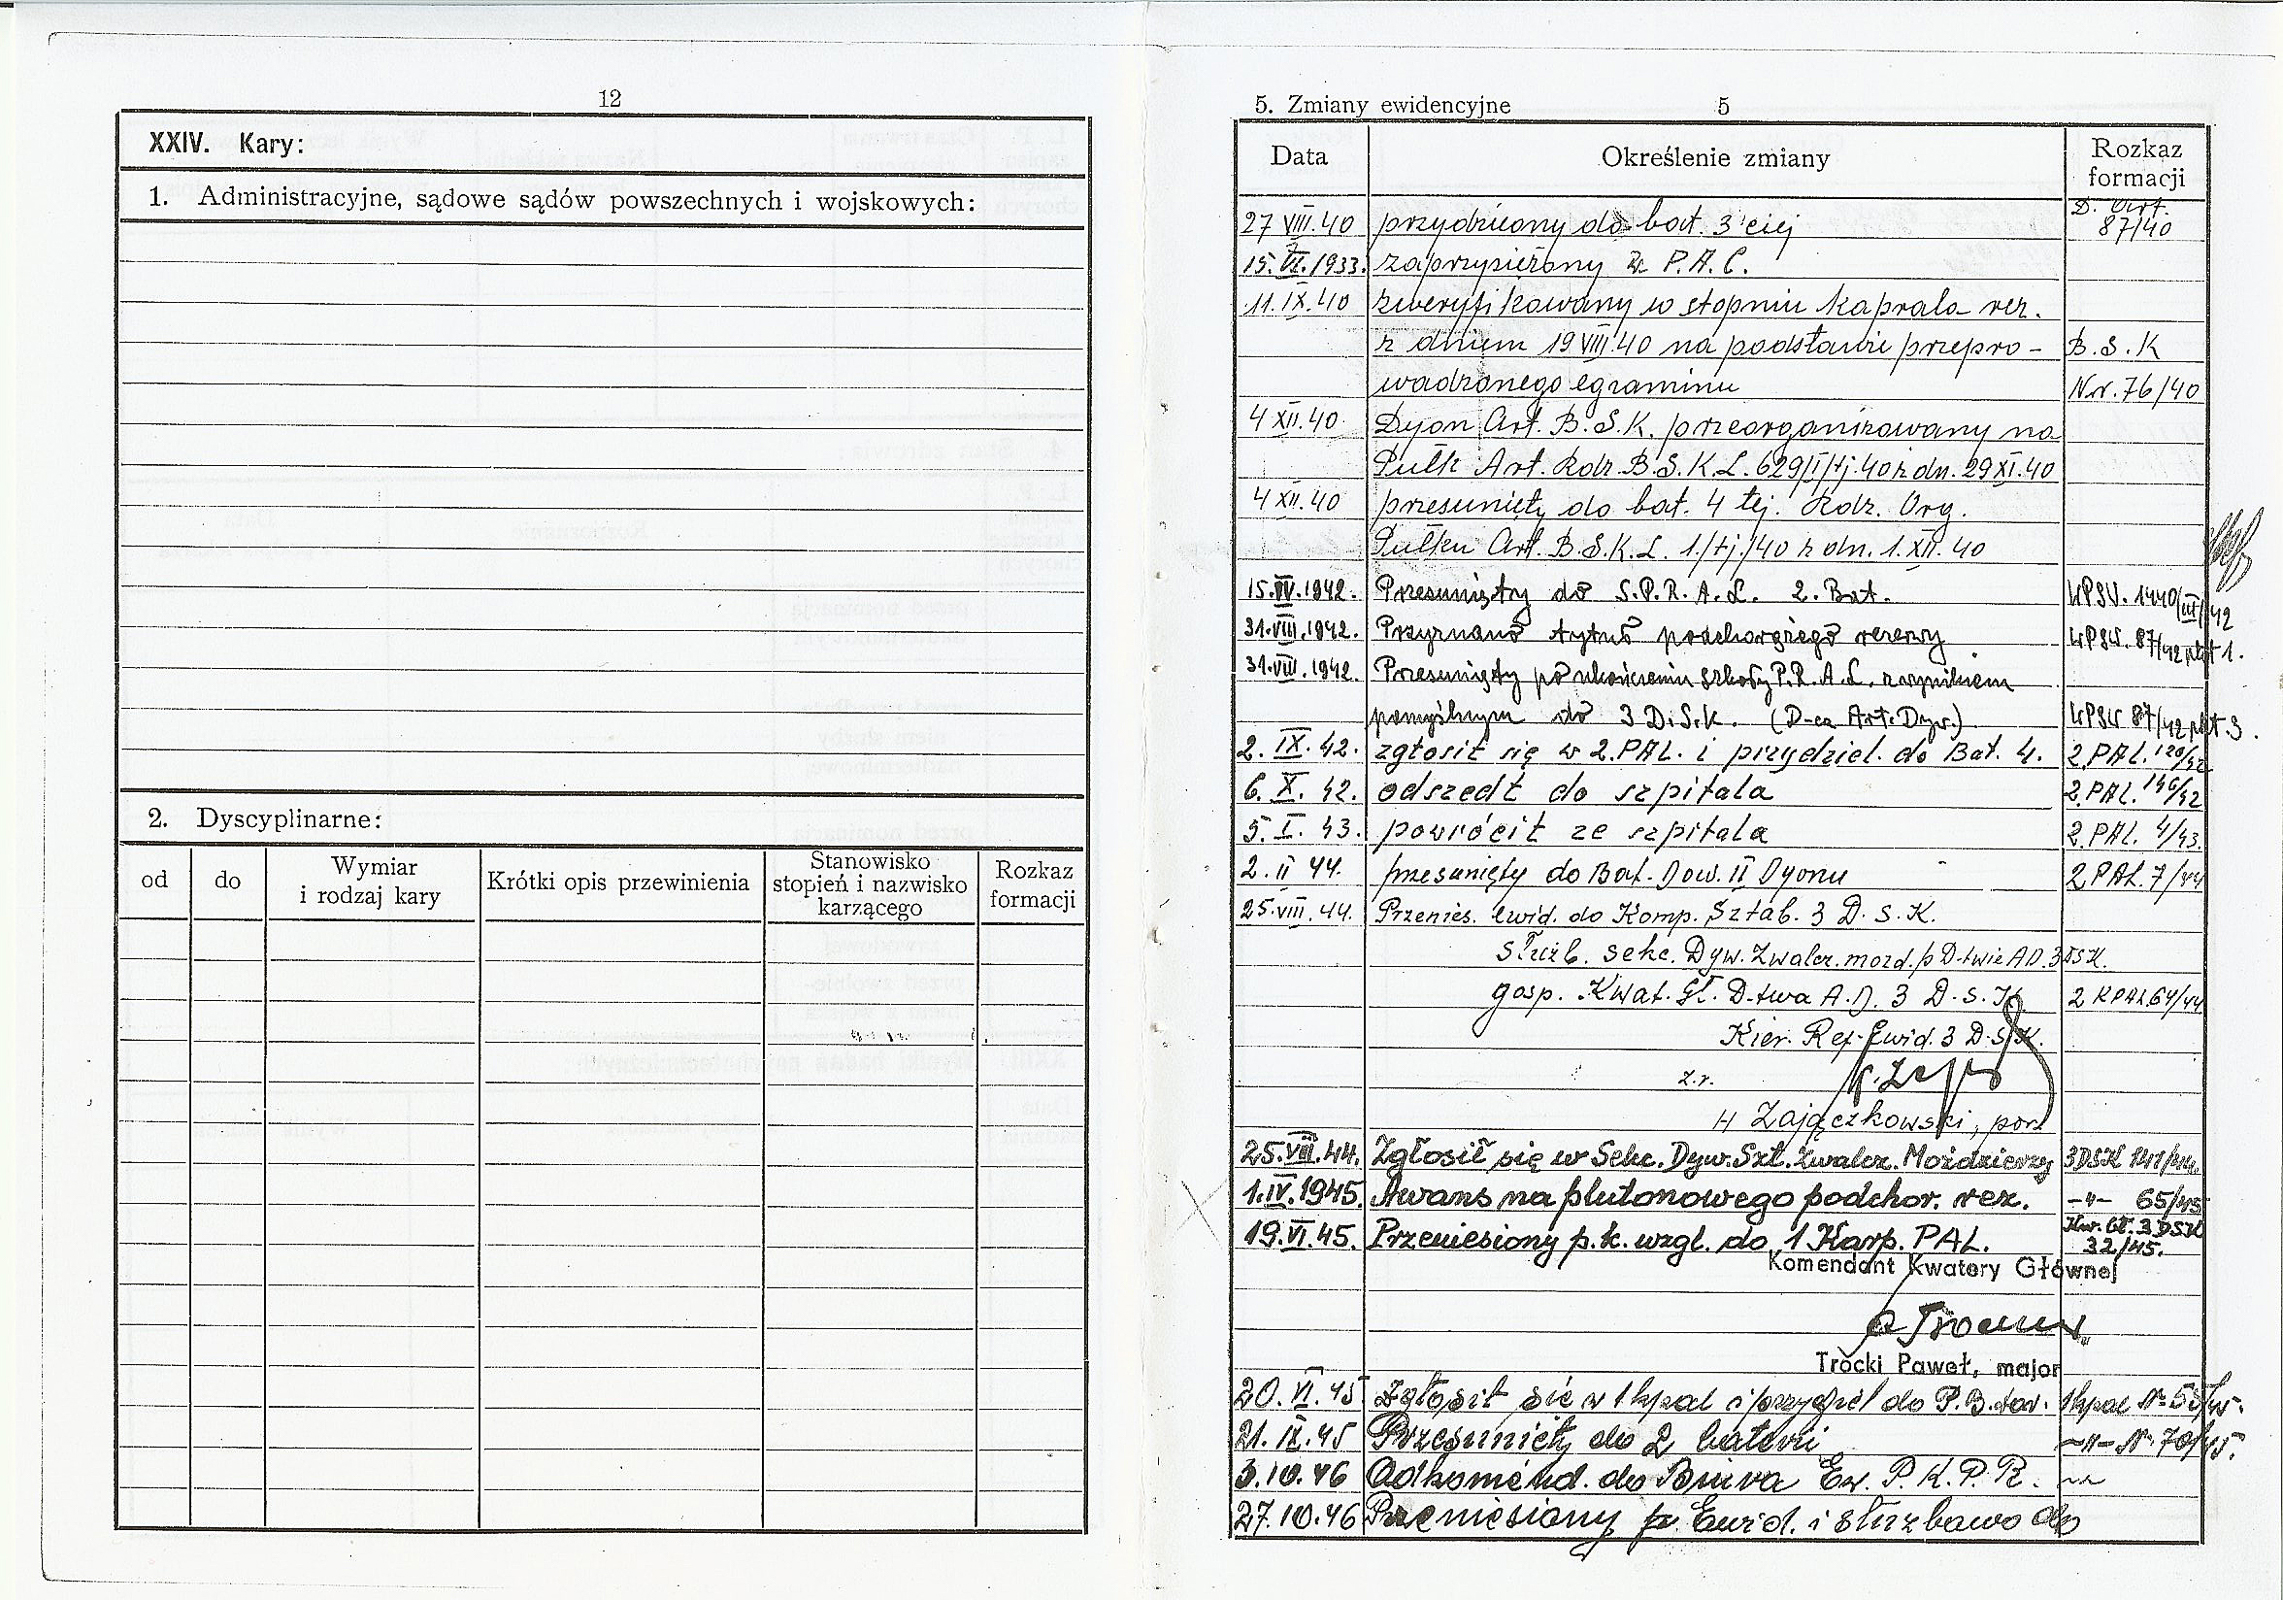 12
XXIV. Kary:
1. Administracyjne, sądowe sądów powszechnych i wojskowych:
2. Dyscyplinarne:
od do Wymiar i rodzaj kary Krótki opis przewinienia Stanowisko stopień i nazwisko karzącego Rozkaz formacji
5. Zmiany ewidencyjne 5
Data Określenie zmiany Rozkaz formacji
27 VIII.40 przydzielony do bat. 3 ciej D. Art. 87/40
15.VI.1933. zaprzysiężony P.A.C.
11.IX.40 zweryfikowany w stopniu kaprala rez.
z dniem 19 VIII.40 na podstawie przepro- B.S.K
wadzonego egzaminu Nr. 76/40
4 XII.40 Dyon Art. B.S.K. przeorganizowany na
Pułk Art. Rdz. B.S.K. L. 629/I/tj.40 z dn. 29 XI.40
4 XII.40 przesunięty do bat. 4 tej. Rdz. Org.
Pułku Art. B.S.K. L. 1./tj./40 z dn. 1.XII.40
15.IV.1942. Przesunięty do S.P.R.A.L. 2. Bat. 1440/III/42
31.VIII.1942. Przyznano tytuł podchorążego rezerwy 87/42 pkt 1.
31.VIII.1942. Przesunięty po ukończeniu szkoły P.R.A.L. z wynikiem
pomyślnym do 3 D.S.K. (D-ca Art. Dyw.) 87/42 pkt. 3.
2. IX. 42. zgłosił się w 2.PAL. i przydziel. do Bat. 4. 2.PAL. 120/42
6. X. 42. odszedł do szpitala 2.PAL. 146/42
5. I. 43. powrócił ze szpitala 2.PAL. 4/43.
2. II 44. przesunięty do Bat. Dow. II Dyonu 2 PAL. 7/44
25.VIII.44. Przenies. ewid. do Komp. Sztab. 3 D.S.K.
służb. sekc. Dyw. Zwalcz. mozd. p D-twie AD. 3 DSK.
gosp. Kwat. Gł. D-twa A.D. 3 D.S.K 2 KPAL 64/44
Kier. Ref. Ewid. 3 D.S.K.
z.r.
H Zajączkowski, por
25.VIII.44. Zgłosił się w Sekc. Dyw. Szt. Zwalcz. Moździerzy 3DSK 141/44
1.IV.1945. Awans na plutonowego podchor. rez. -"- 65/45
19.VI.45. Przeniesiony p.k. wzgl. do 1 Karp. PAL. Kw. Gł. 3 DSK 32/45.
Komendant Kwatery Głównej
Trocki Paweł, major
20.VI.45 Zgłosił się w 1 kpal i przydziel do P.B. 1kpal Nr 55/45.
21.IX.45 Przesunięty do 2 baterii -"- Nr. 70/45.
3.10.46 Odkomend. do Biura Ew. P.K.P.R. -"-
27.10.46 Przeniesiony Ewid. i służbowo do